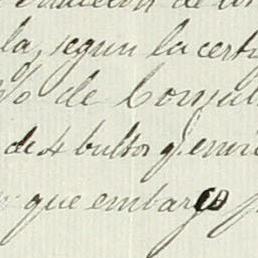 la, segun la certi
% de Consul
de 4 bultos q̃ envi
que embargo